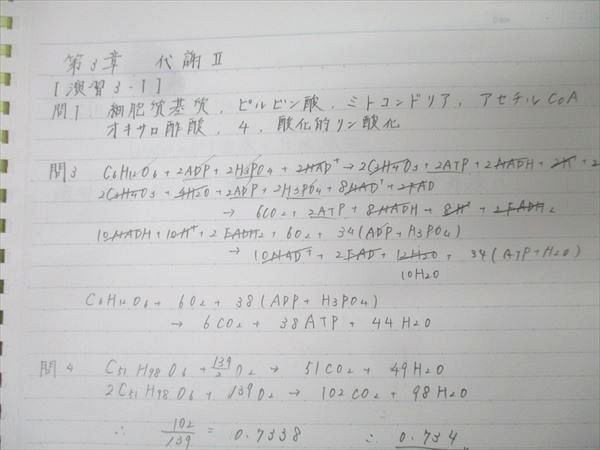 第3章 代謝Ⅱ
[演習3-1]
問1 細胞質基質, ピルビン酸, ミトコンドリア, アセチルCoA
オキサロ酢酸, 4, 酸化的リン酸化
問3 C6H12O6 + 2ADP + 2H3PO4 + 2NAD+ → 2C3H4O3 + 2ATP + 2NADH + 2H+
2C3H4O3 + 4H2O + 2ADP + 2H3PO4 + 8NAD+ + 2FAD
→ 6CO2 + 2ATP + 8NADH + 8H+ + 2FADH2
10NADH + 10H+ + 2FADH2 + 6O2 + 34(ADP + H3PO4)
→ 10NAD+ + 2FAD + 12H2O + 34(ATP + H2O)
10H2O
C6H12O6 + 6O2 + 38(ADP + H3PO4)
→ 6CO2 + 38ATP + 44H2O
問4 C51H98O6 + 139/2 O2 → 51CO2 + 49H2O
2C51H98O6 + 139O2 → 102CO2 + 98H2O
∴ 102/139 = 0.7338 ∴ 0.734